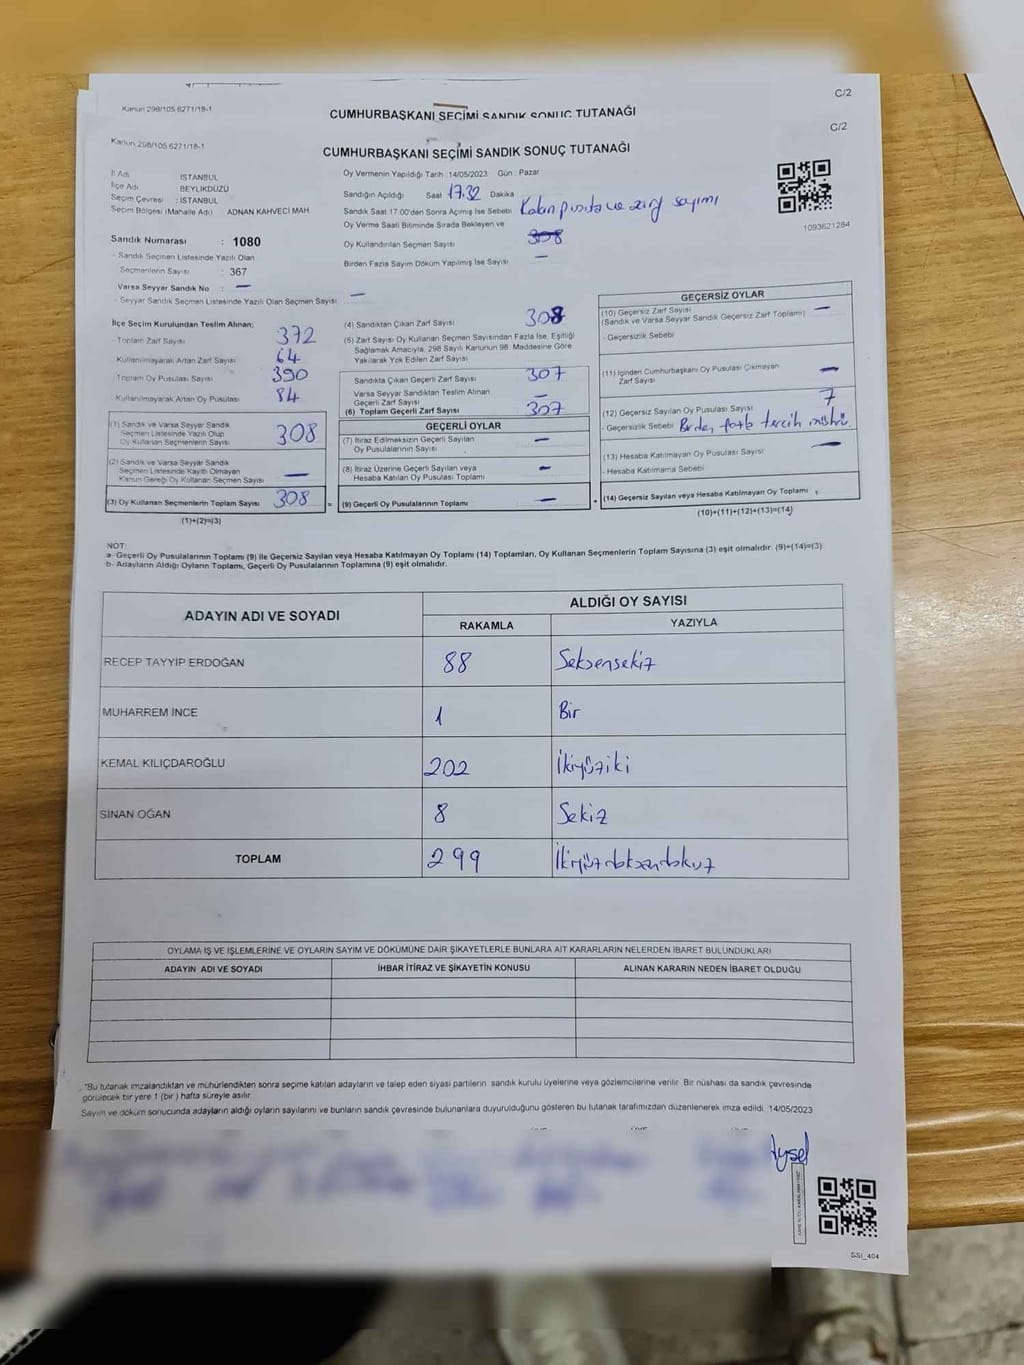 Kanun 298/105 6271/18-1
C/2
CUMHURBAŞKANI SEÇİMİ SANDIK SONUÇ TUTANAĞI
Kanun 298/105 6271/18-1
C/2
CUMHURBAŞKANI SEÇİMİ SANDIK SONUÇ TUTANAĞI
İl Adı İSTANBUL
İlçe Adı BEYLİKDÜZÜ
Seçim Çevresi : İSTANBUL
Seçim Bölgesi (Mahalle Adı) ADNAN KAHVECİ MAH
Sandık Numarası : 1080
- Sandık Seçmen Listesinde Yazılı Olan
Seçmenlerin Sayısı : 367
Varsa Seyyar Sandık No : —
- Seyyar Sandık Seçmen Listesinde Yazılı Olan Seçmen Sayısı —
Oy Vermenin Yapıldığı Tarih : 14/05/2023 Gün : Pazar
Sandığın Açıldığı Saat 17.32 Dakika
Sandık Saat 17.00'den Sonra Açılmış İse Sebebi Kalan pusula ve zarf sayımı
Oy Verme Saati Bitiminde Sırada Bekleyen ve
Oy Kullandırılan Seçmen Sayısı 308
Birden Fazla Sayım Döküm Yapılmış İse Sayısı —
1093621284
İlçe Seçim Kurulundan Teslim Alınan;
Toplam Zarf Sayısı 372
Kullanılmayarak Artan Zarf Sayısı 64
Toplam Oy Pusulası Sayısı 390
Kullanılmayarak Artan Oy Pusulası 84
(1) Sandık ve Varsa Seyyar Sandık
Seçmen Listesinde Yazılı Olup
Oy Kullanan Seçmenlerin Sayısı 308
(2) Sandık ve Varsa Seyyar Sandık
Seçmen Listesinde Kayıtlı Olmayan
Kanun Gereği Oy Kullanan Seçmen Sayısı —
(3) Oy Kullanan Seçmenlerin Toplam Sayısı 308 =
(1)+(2)=(3)
(4) Sandıktan Çıkan Zarf Sayısı 308
(5) Zarf Sayısı Oy Kullanan Seçmen Sayısından Fazla İse, Eşitliği
Sağlamak Amacıyla, 298 Sayılı Kanunun 98. Maddesine Göre
Yakılarak Yok Edilen Zarf Sayısı
Sandıkta Çıkan Geçerli Zarf Sayısı 307
Varsa Seyyar Sandıktan Teslim Alınan
Geçerli Zarf Sayısı —
(6) Toplam Geçerli Zarf Sayısı 307
GEÇERLİ OYLAR
(7) İtiraz Edilmeksizin Geçerli Sayılan
Oy Pusulalarının Sayısı —
(8) İtiraz Üzerine Geçerli Sayılan veya
Hesaba Katılan Oy Pusulası Toplamı —
(9) Geçerli Oy Pusulalarının Toplamı — +
GEÇERSİZ OYLAR
(10) Geçersiz Zarf Sayısı —
(Sandık ve Varsa Seyyar Sandık Geçersiz Zarf Toplamı)
- Geçersizlik Sebebi
(11) İçinden Cumhurbaşkanı Oy Pusulası Çıkmayan
Zarf Sayısı —
(12) Geçersiz Sayılan Oy Pusulası Sayısı 7
- Geçersizlik Sebebi Birden fazla tercih mührü.
(13) Hesaba Katılmayan Oy Pusulası Sayısı —
- Hesaba Katılmama Sebebi
(14) Geçersiz Sayılan veya Hesaba Katılmayan Oy Toplamı
(10)+(11)+(12)+(13)=(14)
NOT:
a- Geçerli Oy Pusulalarının Toplamı (9) ile Geçersiz Sayılan veya Hesaba Katılmayan Oy Toplamı (14) Toplamları, Oy Kullanan Seçmenlerin Toplam Sayısına (3) eşit olmalıdır. (9)+(14)=(3)
b- Adayların Aldığı Oyların Toplamı, Geçerli Oy Pusulalarının Toplamına (9) eşit olmalıdır.
ADAYIN ADI VE SOYADI
ALDIĞI OY SAYISI
RAKAMLA YAZIYLA
RECEP TAYYİP ERDOĞAN 88 Seksensekiz
MUHARREM İNCE 1 Bir
KEMAL KILIÇDAROĞLU 202 İkiyüziki
SİNAN OĞAN 8 Sekiz
TOPLAM 299 İkiyüzdoksandokuz
OYLAMA İŞ VE İŞLEMLERİNE VE OYLARIN SAYIM VE DÖKÜMÜNE DAİR ŞİKAYETLERLE BUNLARA AİT KARARLARIN NELERDEN İBARET BULUNDUKLARI
ADAYIN ADI VE SOYADI İHBAR İTİRAZ VE ŞİKAYETİN KONUSU ALINAN KARARIN NEDEN İBARET OLDUĞU
*Bu tutanak imzalandıktan ve mühürlendikten sonra seçime katılan adayların ve talep eden siyasi partilerin sandık kurulu üyelerine veya gözlemcilerine verilir. Bir nüshası da sandık çevresinde
görülecek bir yere 1 (bir ) hafta süreyle asılır.
Sayım ve döküm sonucunda adayların aldığı oyların sayılarını ve bunların sandık çevresinde bulunanlara duyurulduğunu gösteren bu tutanak tarafımızdan düzenlenerek imza edildi. 14/05/2023
Aysel
SSİ_404